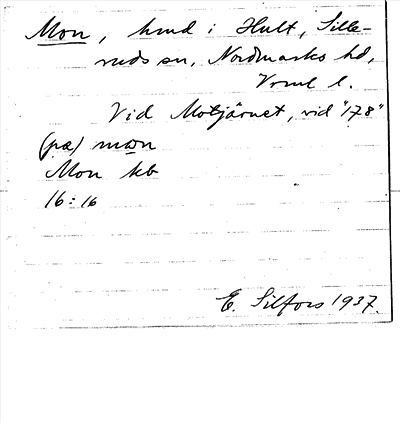 Mon, hmd i Hult, Sille-
ruds sn, Nordmarks hd,
Vrml l.
Vid Motjärnet, vid "178"
(pa) mon
Mon kb
16:16
E. Silfors 1937.